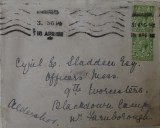 3. 30 PM
10 APR
Cyril C. Sladden Esq.
Officers' Mess
9th Worcesters.
Blackdown Camp
Nr. Farnborough
Aldershot